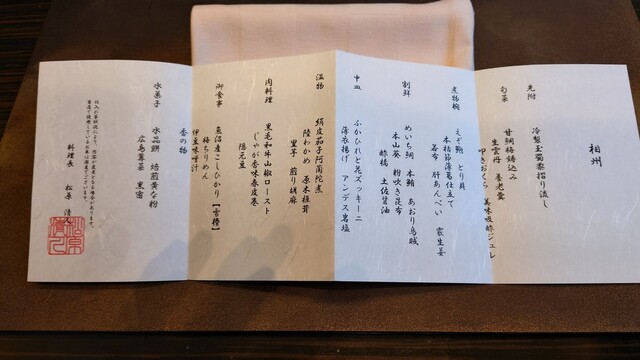 相州
先附
冷製玉蜀黍摺り流し
旬菜
甘鯛梅鋳込み
生雲丹 養老羹
叩きおくら 美味吸酢ジュレ
煮物椀
えぞ鮑 とり貝
本枯節薄葛仕立て
若布 肝あんぺい 露生姜
割鮮
めいち鯛 本鮪 あおり烏賊
本山葵 粉吹き昆布
酢橘 土佐醤油
中皿
ふかひれと花ズッキーニ
薄衣揚げ アンデス岩塩
温物
絹皮茄子阿蘭陀煮
陸わかめ 原木椎茸
里芋 煎り胡麻
肉料理
黒毛和牛山椒ロースト
じゃが香味春皮巻
隠元豆
御食事
魚沼産こしひかり【雪椿】
梅ちりめん
伊豆味噌汁
香の物
水菓子
水晶餅 焙煎黄な粉
広島 黒蜜
仕入れ事情により、内容が変更となる場合があります。
料理長 松原